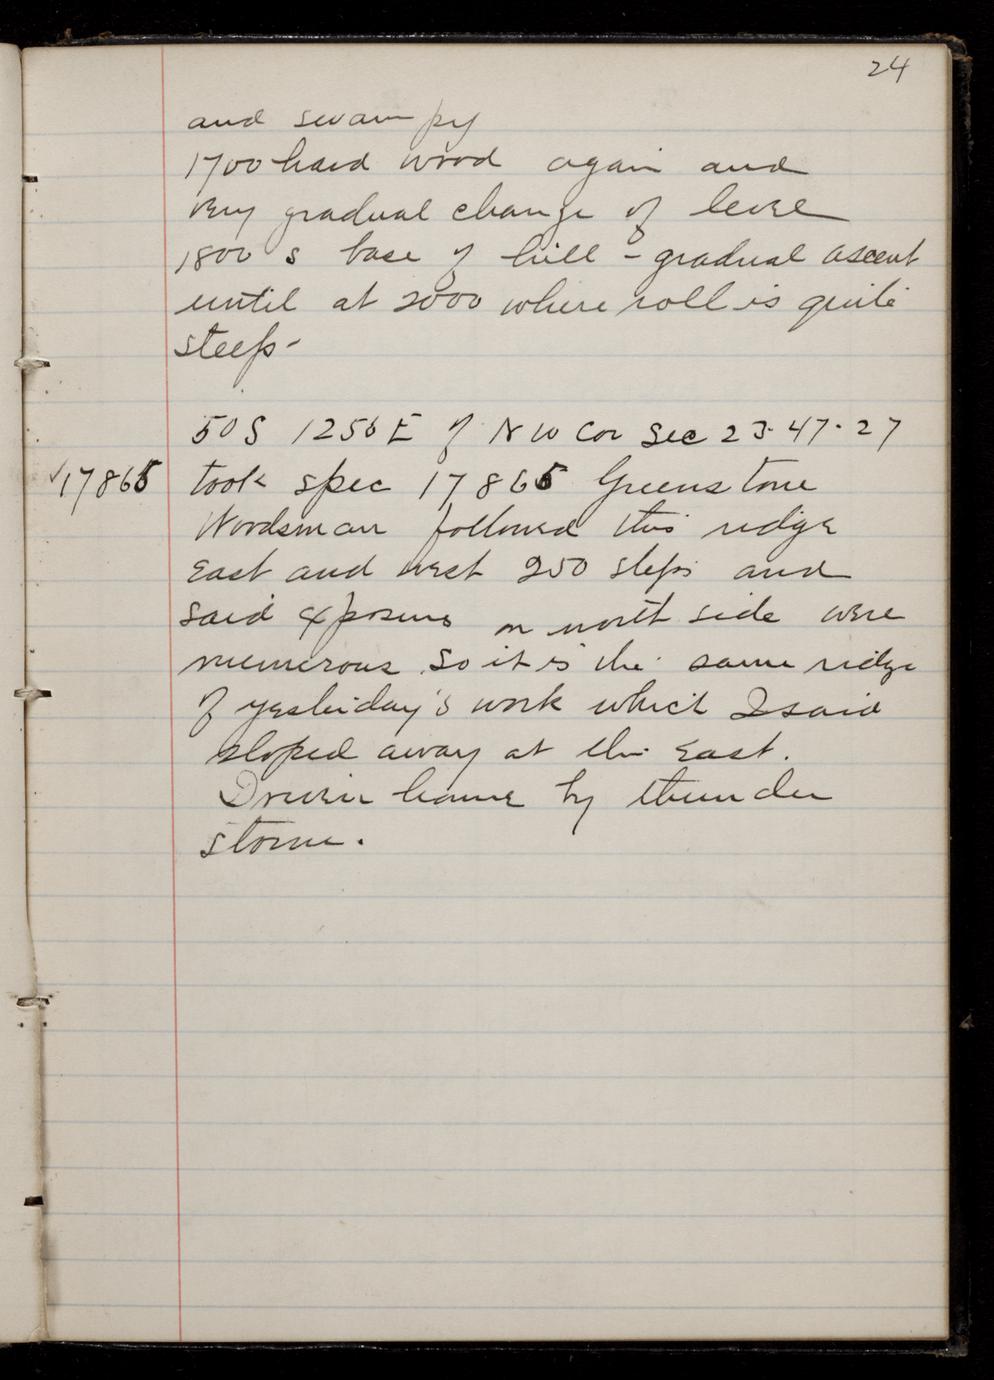 24
and swampy
1700 hard wood again and
very gradual change of level
1800 s base of hill - gradual ascent
until at 2000 where roll is quite
steep-
50 S 1250 E of N W Cor Sec 23-47-27
✓17865 took spec 17865 Greenstone
Woodsman followed this ridge
East and west 250 steps and
said exposures on north side were
numerous. So it is the same ridge
of yesterday's work which I said
sloped away at the East.
Driven home by thunder
storm.